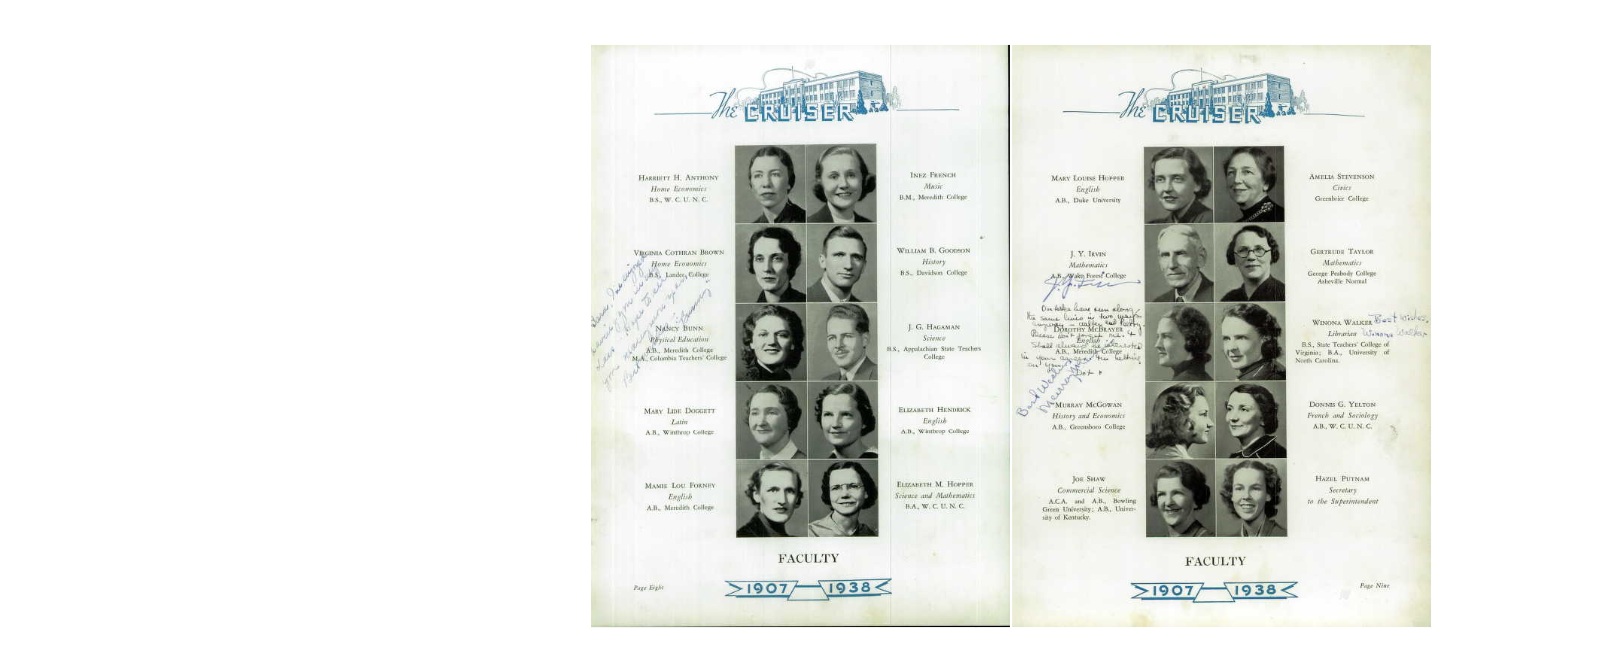 The CRUISER
HARRIETT H. ANTHONY
Home Economics
B.S., W. C. U. N. C.
VIRGINIA COTHRAN BROWN
Home Economics
B.S., Lander College
NANCY BUNN
Physical Education
A.B., Meredith College
M.A., Columbia Teachers' College
MARY LIDE DOGGETT
Latin
A.B., Winthrop College
MAMIE LOU FORNEY
English
A.B., Meredith College
INEZ FRENCH
Music
B.M., Meredith College
WILLIAM B. GOODSON
History
B.S., Davidson College
J. G. HAGAMAN
Science
B.S., Appalachian State Teachers
College
ELIZABETH HENDRICK
English
A.B., Winthrop College
ELIZABETH M. HOPPER
Science and Mathematics
B.A., W. C. U. N. C.
FACULTY
Page Eight
1907 1938
The CRUISER
MARY LOUISE HUFFER
English
A.B., Duke University
J. Y. IRVIN
Mathematics
A.B., Wake Forest College
DOROTHY MCBRAYER
English
A.B., Meredith College
Best Wishes
MURRAY MCGOWAN
History and Economics
A.B., Greensboro College
JOE SHAW
Commercial Science
A.C.A. and A.B., Bowling
Green University; A.B., Univer-
sity of Kentucky.
AMELIA STEVENSON
Civics
Greenbrier College
GERTRUDE TAYLOR
Mathematics
George Peabody College
Asheville Normal
Best Wishes,
Winona Walker
WINONA WALKER
Librarian
B.S., State Teachers' College of
Virginia; B.A., University of
North Carolina.
DONNIS G. YELTON
French and Sociology
A.B., W. C. U. N. C.
HAZEL PUTNAM
Secretary
to the Superintendent
FACULTY
1907 1938
Page Nine